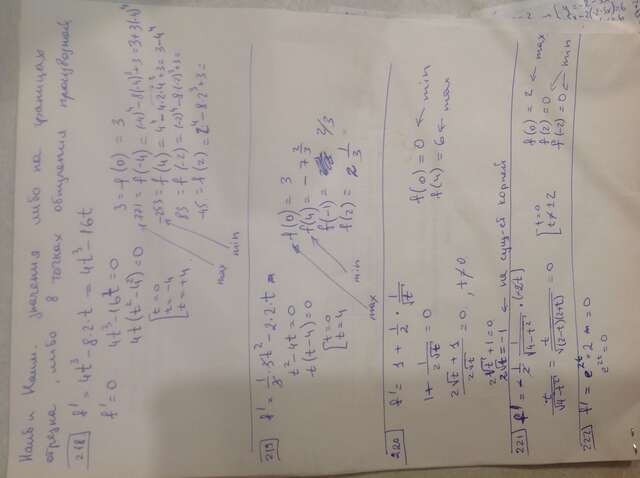 Наиб и Наим. значения либо на границах
отрезка, либо в точках обнуления производной
218 f' = 4t³ - 8·2·t = 4t³ - 16t
f' = 0 4t³ - 16t = 0
4t(t² - 4) = 0
t = 0
3 = f(0) = 3
max
min
219 f' = 1/3·3t² - 2·2·t
t² - 4t = 0
t(t - 4) = 0
t = 0
t = 4
f(0) = 3
f(4) = -7 2/3
f(-1) = 2/3
f(2) =
max
min
220 f' = 1 + 1/2 · 1/√t
1 + 1/2√t = 0
2√t + 1 / 2√t = 0, t ≠ 0
2√t + 1 = 0
2√t = -1 ← не сущ-ей корней
f(0) = 0 ← min
f(4) = 6 ← max
221 f' = 1/2 · 1/√(4-t²) · (-2t)
t/√(4-t²) = t/√((2-t)(2+t)) = 0
t = 0
f(0) = 2 ← max
f(2) = 0
f(-2) = 0 ← min
222 f' = e²ᵗ · 2 = 0
e²ᵗ = 0